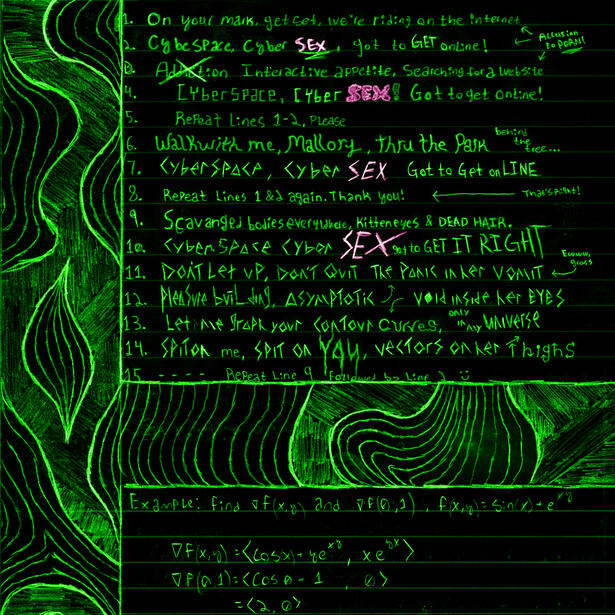 1. On your mark, get set, we're riding on the internet
2. CybeSPACE, Cyber SEX, got to GET online!
Allusion to PORN!
3. Addiction Interactive appetite, Searching for a website
4. CYberSPACE, CYber SEX! Got to get online!
5. Repeat Lines 1-2, Please
6. Walk with me, Mallory, thru the Park behind the tree...
7. CYberSPACE, CYber SEX Got to Get onLINE
8. Repeat Lines 1 & 2 again. Thank you! That's right!
9. Scavanged bodies everywhere, Kitten eyes & DEAD HAIR.
10. CYberSPACE CYber SEX got to GET IT RIGHT
11. DON'T Let UP, DON'T QUIT The PANIC in her VOMIT Ewww, gross
12. PleaSure building, ASYMPTOTIC void inside her EYES
13. Let me graph your CONTOUR CURVES, only in my UNIVERSE
14. SPIT on me, SPIT ON YOU, vectors on her thighs
15. - - - - Repeat Line 9 followed by line 2
Example: find ∇f(x,y) and ∇f(0,1), f(x,y)=sin(x)+e^xy
∇f(x,y)=<cosx+ye^xy, xe^yx>
∇f(0,1)=<cos0-1, 0>
=<2,0>